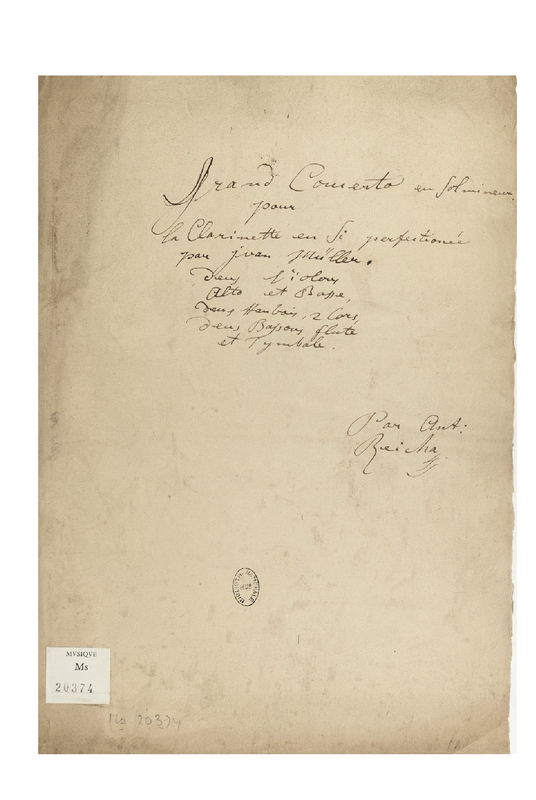 Grand Concerto en Sol mineur.
pour
la Clarinette en Si perfectionée
par jvan Müller.
deux Violons
Alto et Basse,
deux Haubois, 2 Cors,
deux Bassons flute
et Tymbale.
Par Ant:
Reicha
MVSIQVE
Ms
20374
Ms 20374